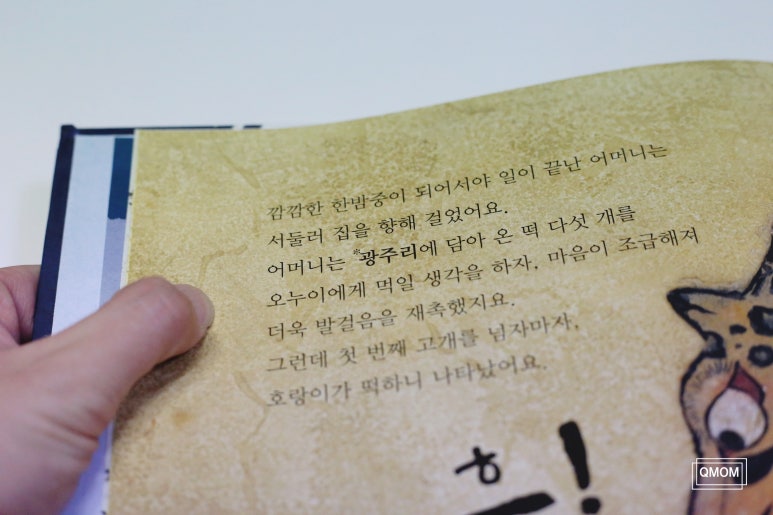 깜깜한 한밤중이 되어서야 일이 끝난 어머니는
서둘러 집을 향해 걸었어요.
어머니는 *광주리에 담아 온 떡 다섯 개를
오누이에게 먹일 생각을 하자, 마음이 조급해져
더욱 발걸음을 재촉했지요.
그런데 첫 번째 고개를 넘자마자,
호랑이가 떡하니 나타났어요.
QMOM